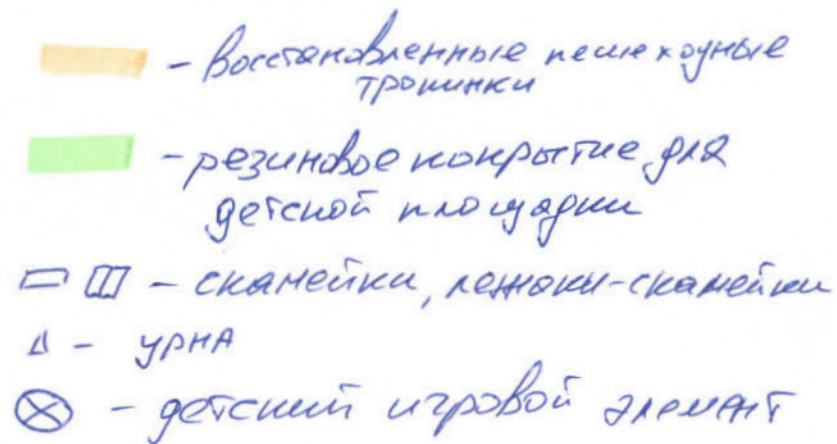 - восстановленные пешеходные
тропинки
- резиновое покрытие для
детской площадки
- скамейки, лежаки-скамейки
- урна
- детский игровой элемент